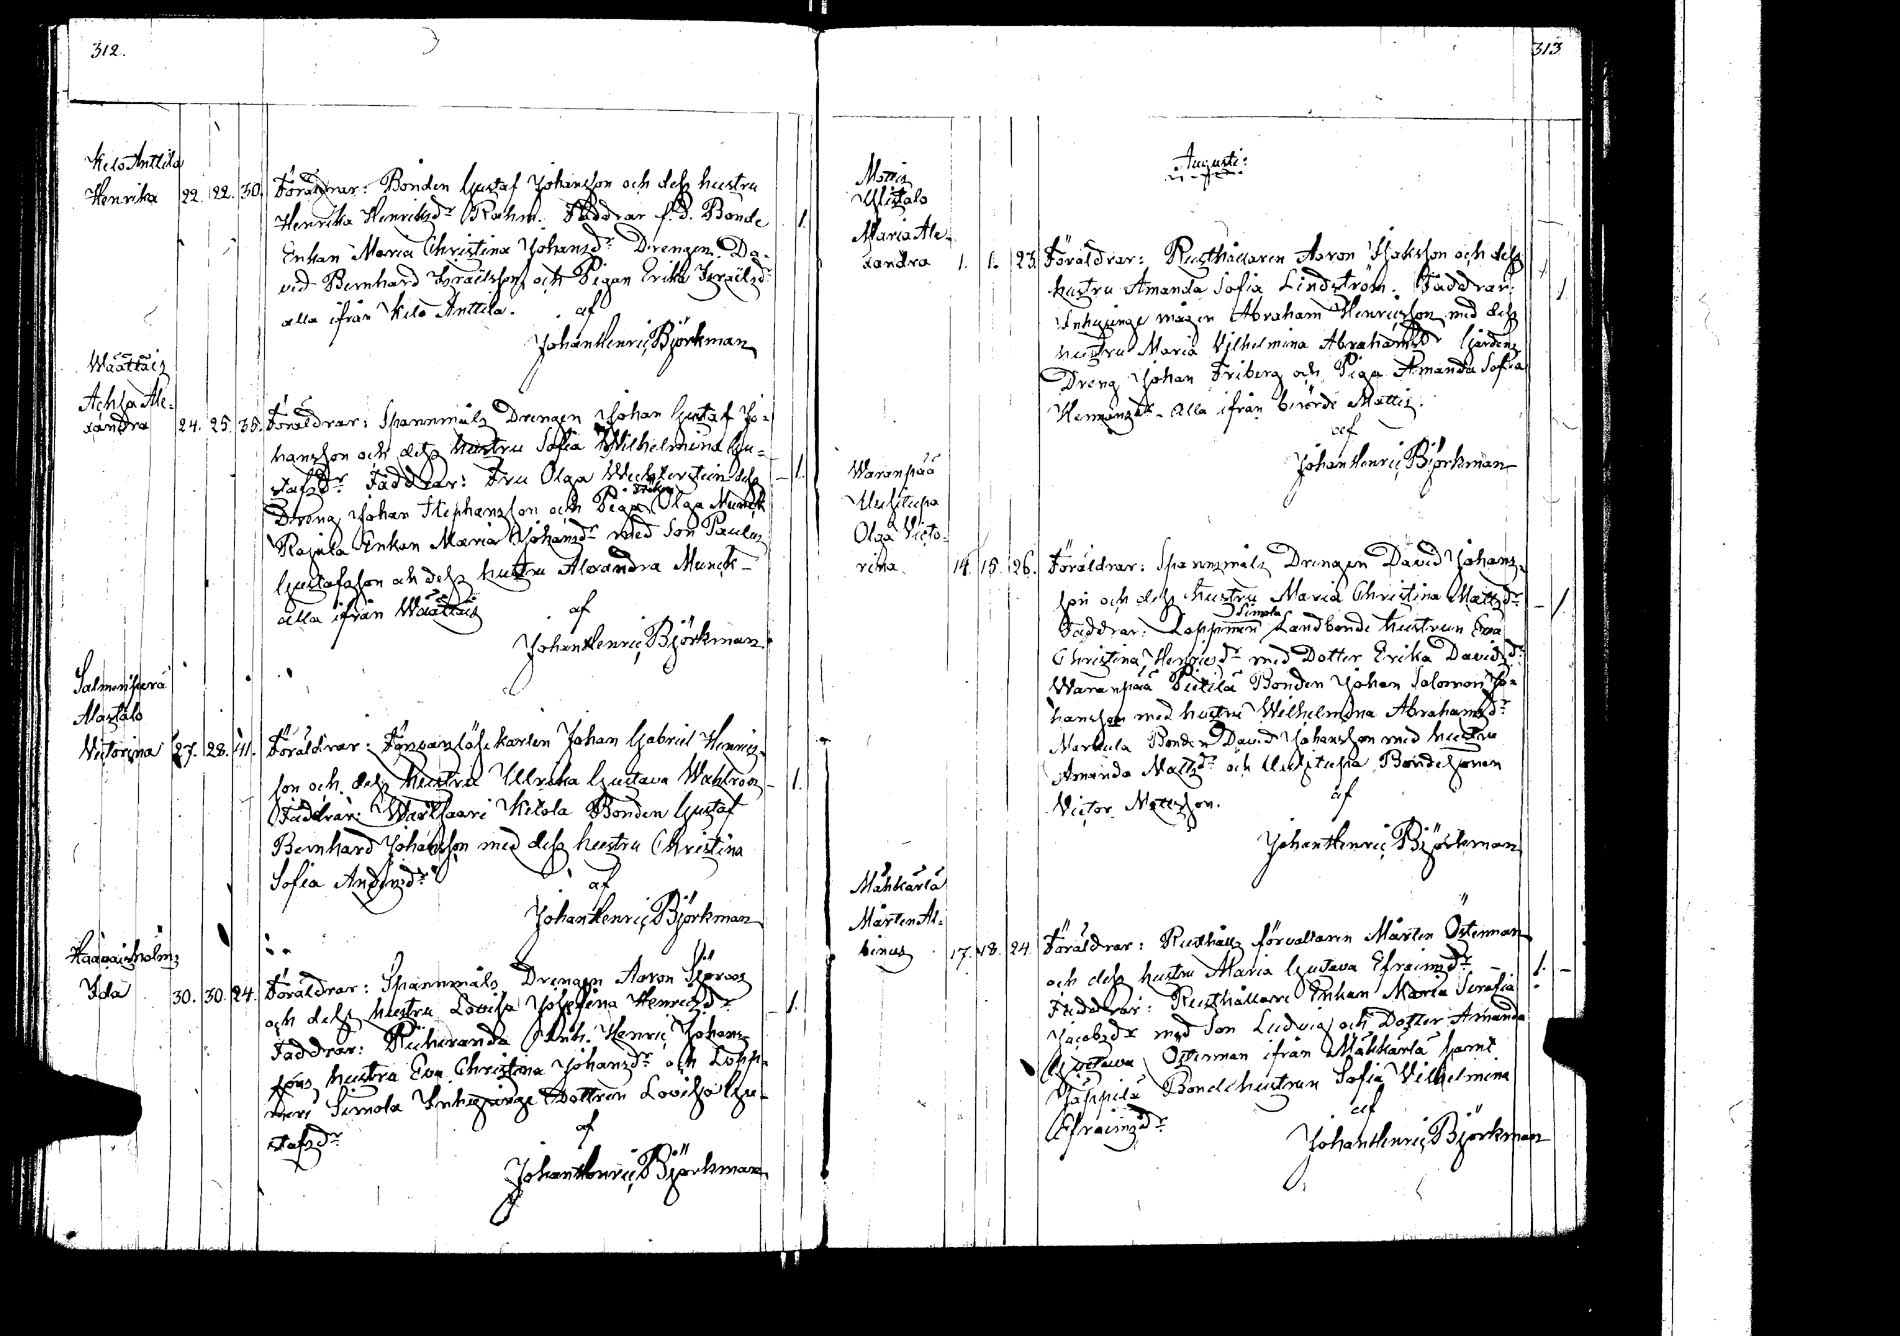 312.
Kilo Anttila
Henrika 22. 22. 30. Föräldrar: Bonden Gustaf Johansson och dess hustru
Henrika Henriksdr Rahm. Faddrar f.d. Bonde 1.
Enkan Maria Christina Johansdr Drengen Da-
vid Bernhard Israelsson och Pigan Erika Israelsdr
alla ifrån Kilo Anttila.
af
Johan Henric Björkman
Wäättäis
Achsa Ale-
xandra 24. 25. 35. Föräldrar: Spannmåls Drengen Johan Gustaf Jo-
hansson och dess hustru Sofia Wilhelmina Gu- 1.
stafsdr Faddrar: Fru Olga dess
Dreng Johan Stephansson och Piga Olga Munck
Enkan Maria Johansdr med Son Paulus
Gustafsson och dess hustru Alexandra Munck
alla ifrån Wäättäis
af
Johan Henric Björkman
Salmenperä
Alastalo
Victorina 27. 28. 41. Föräldrar: Johan Gabriel Henrics-
son och dess hustru Ulrika Gustava Wahlroos 1.
Faddrar: Kilola Bonden Gustaf
Bernhard Johansson med dess hustru Christina
Sofia Andersdr
af
Johan Henric Björkman
Ida 30. 30. 24. Föräldrar: Spannmåls Drengen Aaron Sjöroos
och dess hustru Lovisa Josefina Henricsdr 1.
Faddrar: Inh. Henric Johans-
sons hustru Eva Christina Johansdr och Lopp-
meri Simola Inhysinge Dottren Lovisa Gu-
stafsdr
af
Johan Henric Björkman
313
Augusti:
Mattis
Ylistalo
Maria Ale-
xandra 1. 1. 23. Föräldrar: Rusthållaren Aaron Isaksson och dess
hustru Amanda Sofia Lindström. Faddrar: 1
Inhysinge mågen Abraham Henricsson med dess
hustru Maria Vilhelmina Abrahamsdr Gårdens
Dreng Johan Friberg och Piga Amanda Sofia
Hermansdr - alla ifrån Mattis.
af
Johan Henric Björkman
Waranpää
Uusitupa
Olga Victo-
rina 14. 15. 26. Föräldrar: Spannmåls Drengen David Johans-
son och dess hustru Maria Christina Mattsdr 1
Simola
Faddrar: Landbonde hustrun Eva
Christina Henricsdr med Dotter Erika Davidsdr
Waranpää Bonden Johan Salomon Jo-
hansson med hustru Wilhelmina Abrahamsdr
Markula Bonden David Johansson med hustru
Amanda Mattsdr och Uusitupa Bondesonen
Victor Mattsson.
af
Johan Henric Björkman
Mahkarla
Mårten Al-
binus 17. 18. 24. Föräldrar: Rusthålls förvaltaren Mårten Österman
och dess hustru Maria Gustava Efraimsdr 1.
Faddrar: Rusthållare Enkan Maria Serafia
Jacobsdr med Son Ludvig och Dotter Amanda
Gustava Österman ifrån Mahkarla samt
Jäppilä Bondehustrun Sofia Vilhelmina
Efraimsdr
af
Johan Henric Björkman